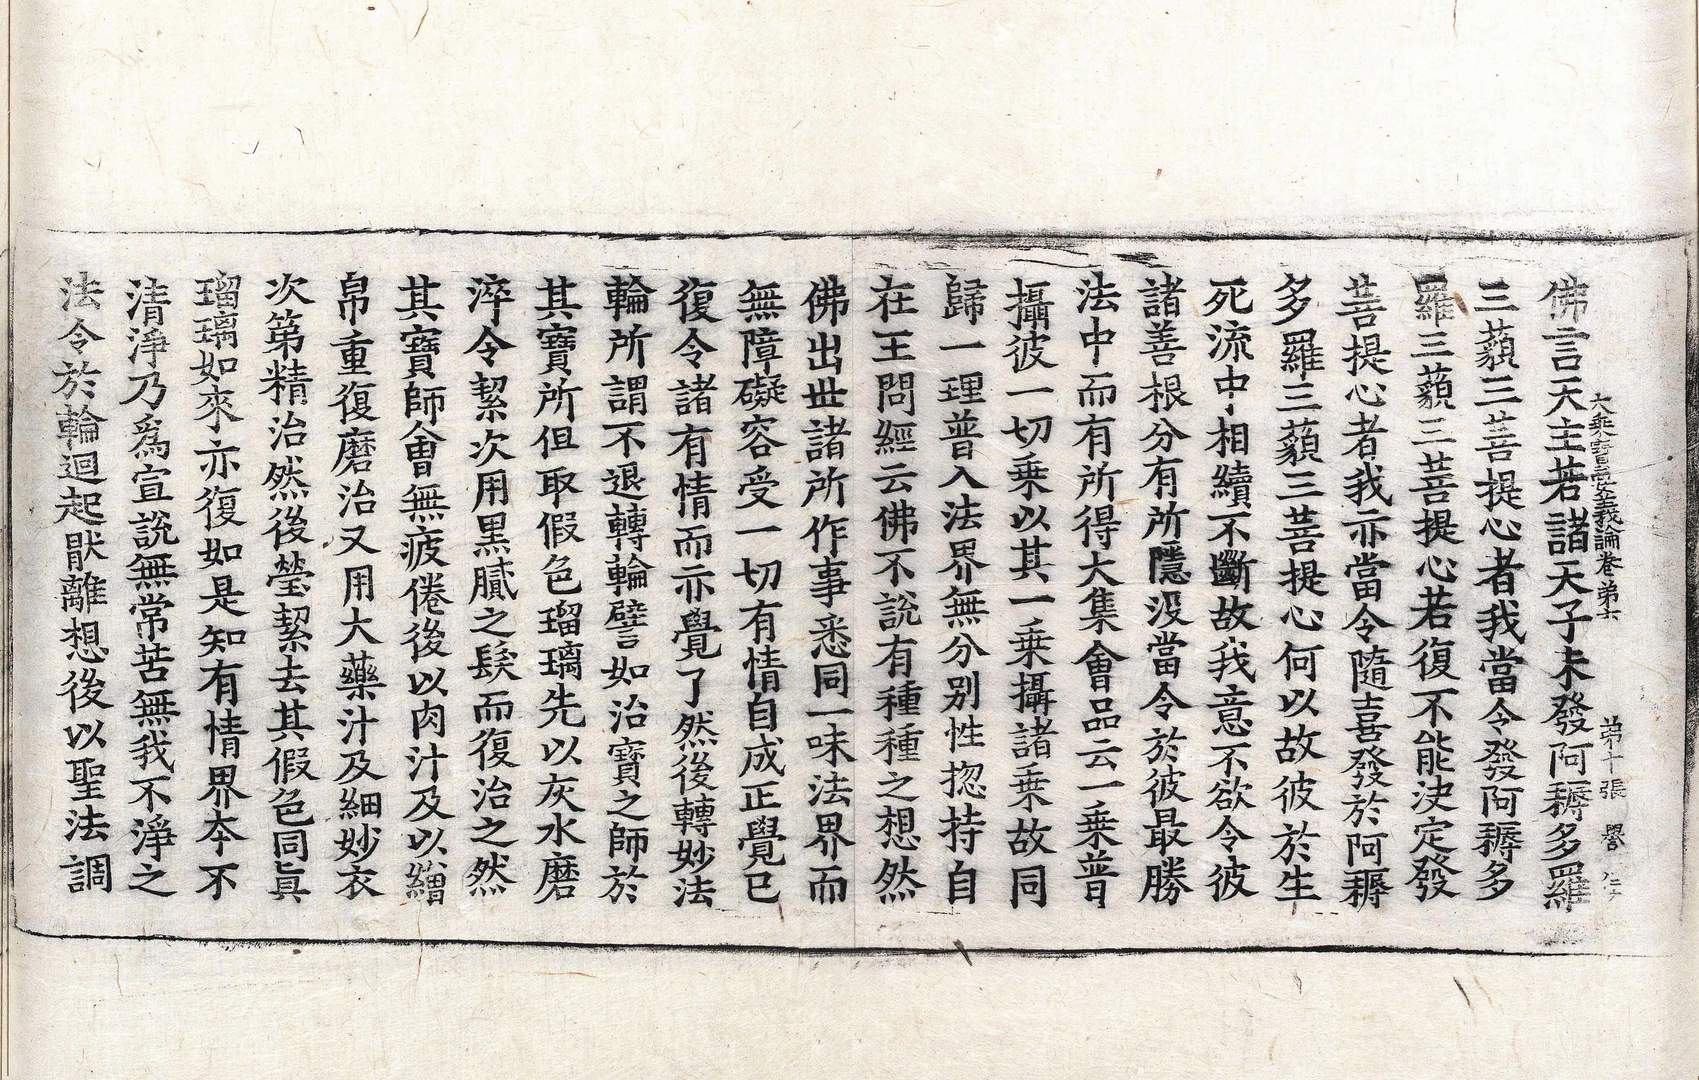 大乗寶要義論卷弟六 弟十張 譽
佛言天主若諸天子未發阿耨多羅
三藐三菩提心者我當令發阿耨多
羅三藐三菩提心若復不能決定發
菩提心者我亦當令隨喜發於阿耨
多羅三藐三菩提心何以故彼於生
死流中相續不斷故我意不欲令彼
諸善根分有所隱没當令於彼最勝
法中而有所得大集會品云一乗普
攝彼一切乗以其一乗攝諸乗故同
歸一理普入法界無分别性揔持自
在王問經云佛不説有種種之想然
佛出世諸所作事悉同一味法界而
無障礙容受一切有情自成正覺已
復令諸有情而亦覺了然後轉妙法
輪所謂不退轉輪譬如治寶之師於
其寶所但取假色瑠璃先以灰水磨
淬令絜次用黒膩之髮而復治之然
其寶師曾無疲倦後以肉汁及以繒
帛重復磨治又用大藥汁及細妙衣
次第精治然後瑩絜去其假色同眞
瑠璃如來亦復如是知有情界本不
清淨乃爲宣説無常苦無我不淨之
法令於輪迴起猒離想後以聖法調